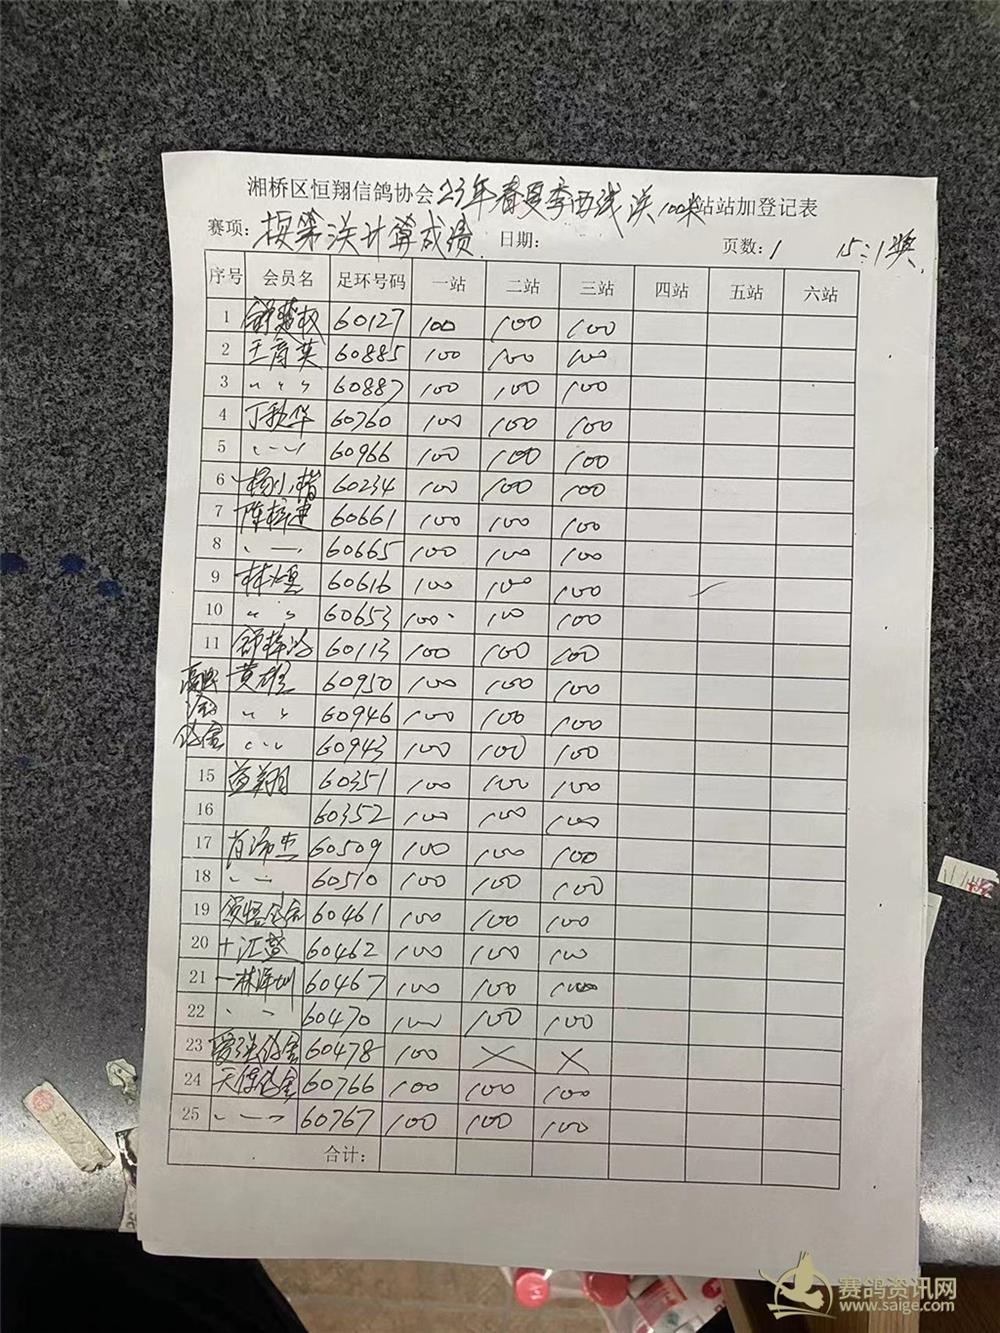 湘桥区恒翔信鸽协会23年春夏季西线关100米站站加登记表
赛项: 按第关计算成绩 日期: 页数: 1 15:1奖
序号 会员名 足环号码 一站 二站 三站 四站 五站 六站
1 60127 100 100 100
2 王育英 60885 100 100 100
3 〃 〃 60887 100 100 100
4 丁秋华 60760 100 100 100
5 60966 100 100 100
6 杨小楷 60234 100 100 100
7 60661 100 100 100
8 60665 100 100 100
9 60616 100 100 100
10 〃 〃 60653 100 100 100
11 60113 100 100 100
黄雄 60950 100 100 100
〃 〃 60946 100 100 100
60943 100 100 100
15 益翔 60351 100 100 100
16 60352 100 100 100
17 60509 100 100 100
18 60510 100 100 100
19 60461 100 100 100
20 十汇盛 60462 100 100 100
21 一林泽圳 60467 100 100 100
22 〃 〃 60470 100 100 100
23 60478 100 × ×
24 60766 100 100 100
25 60767 100 100 100
合计:
赛鸽资讯网
www.saige.com